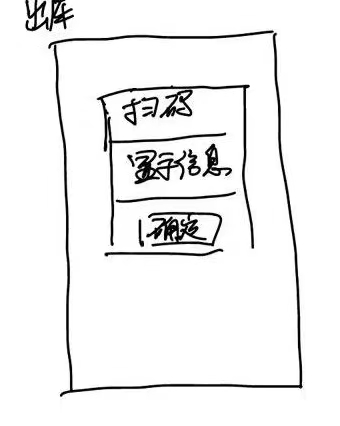 出库
扫码
显示信息
确定